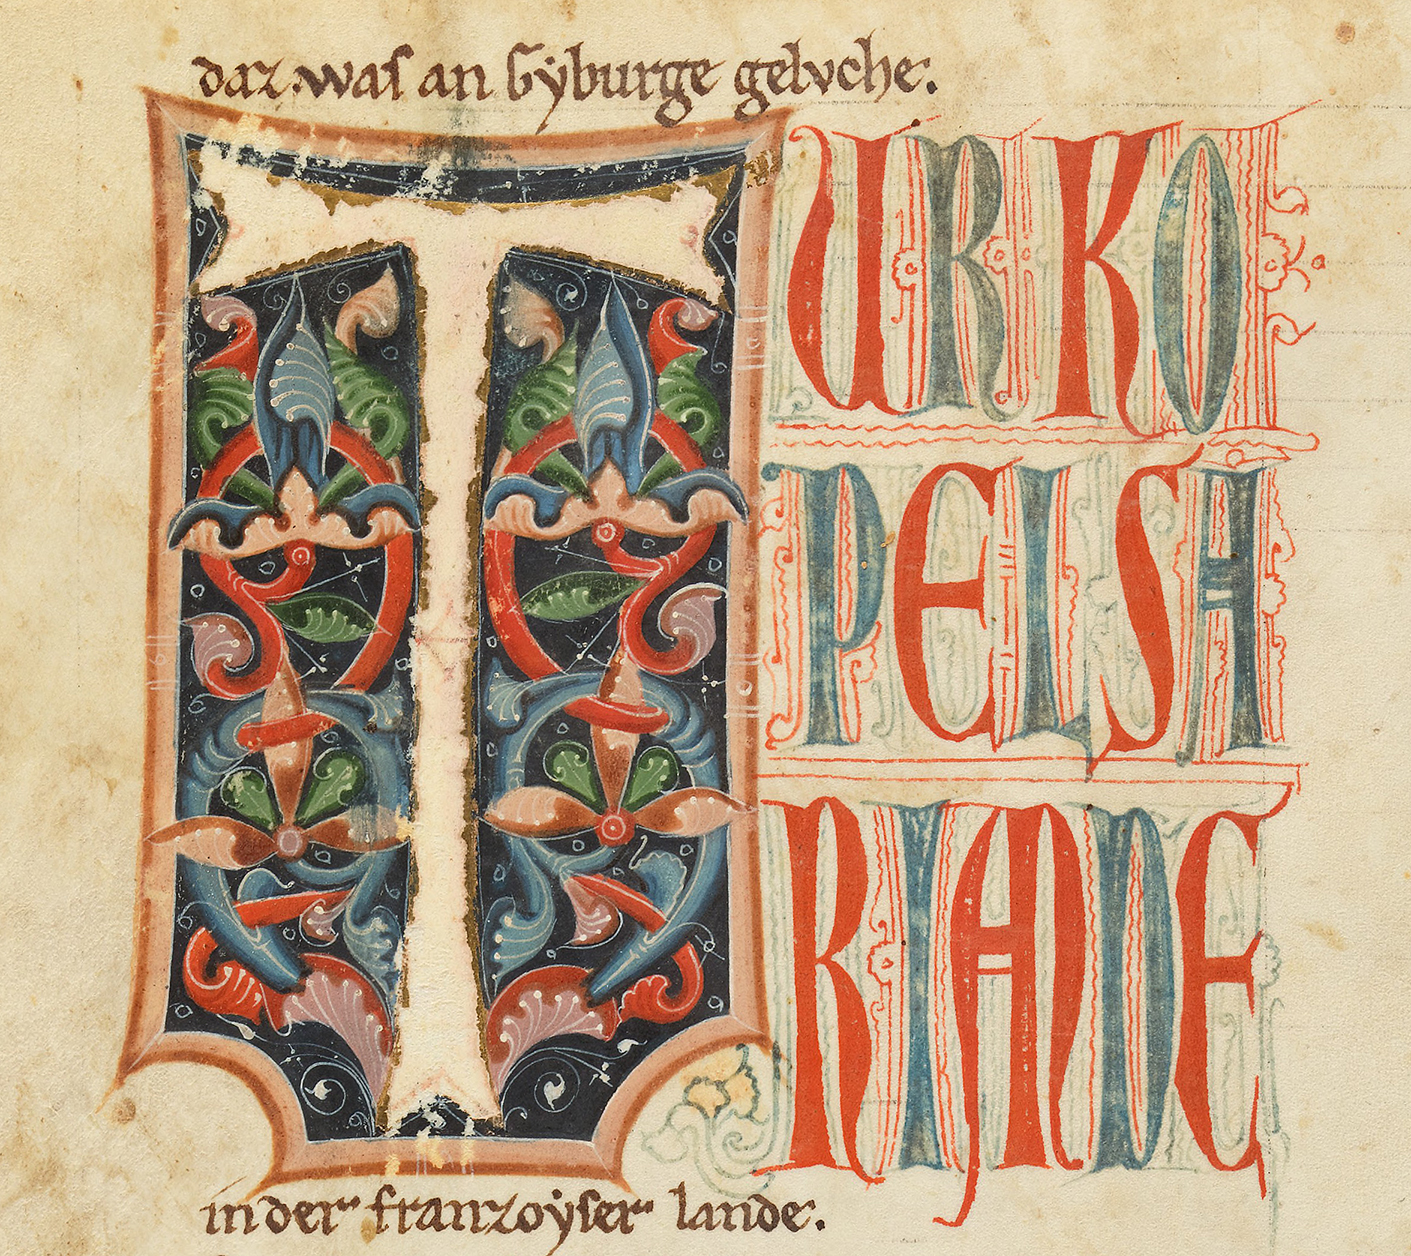 daz was an Gÿburge gelvche.
TURKO
PELSA
RIANDE
in der franzoÿser lande.